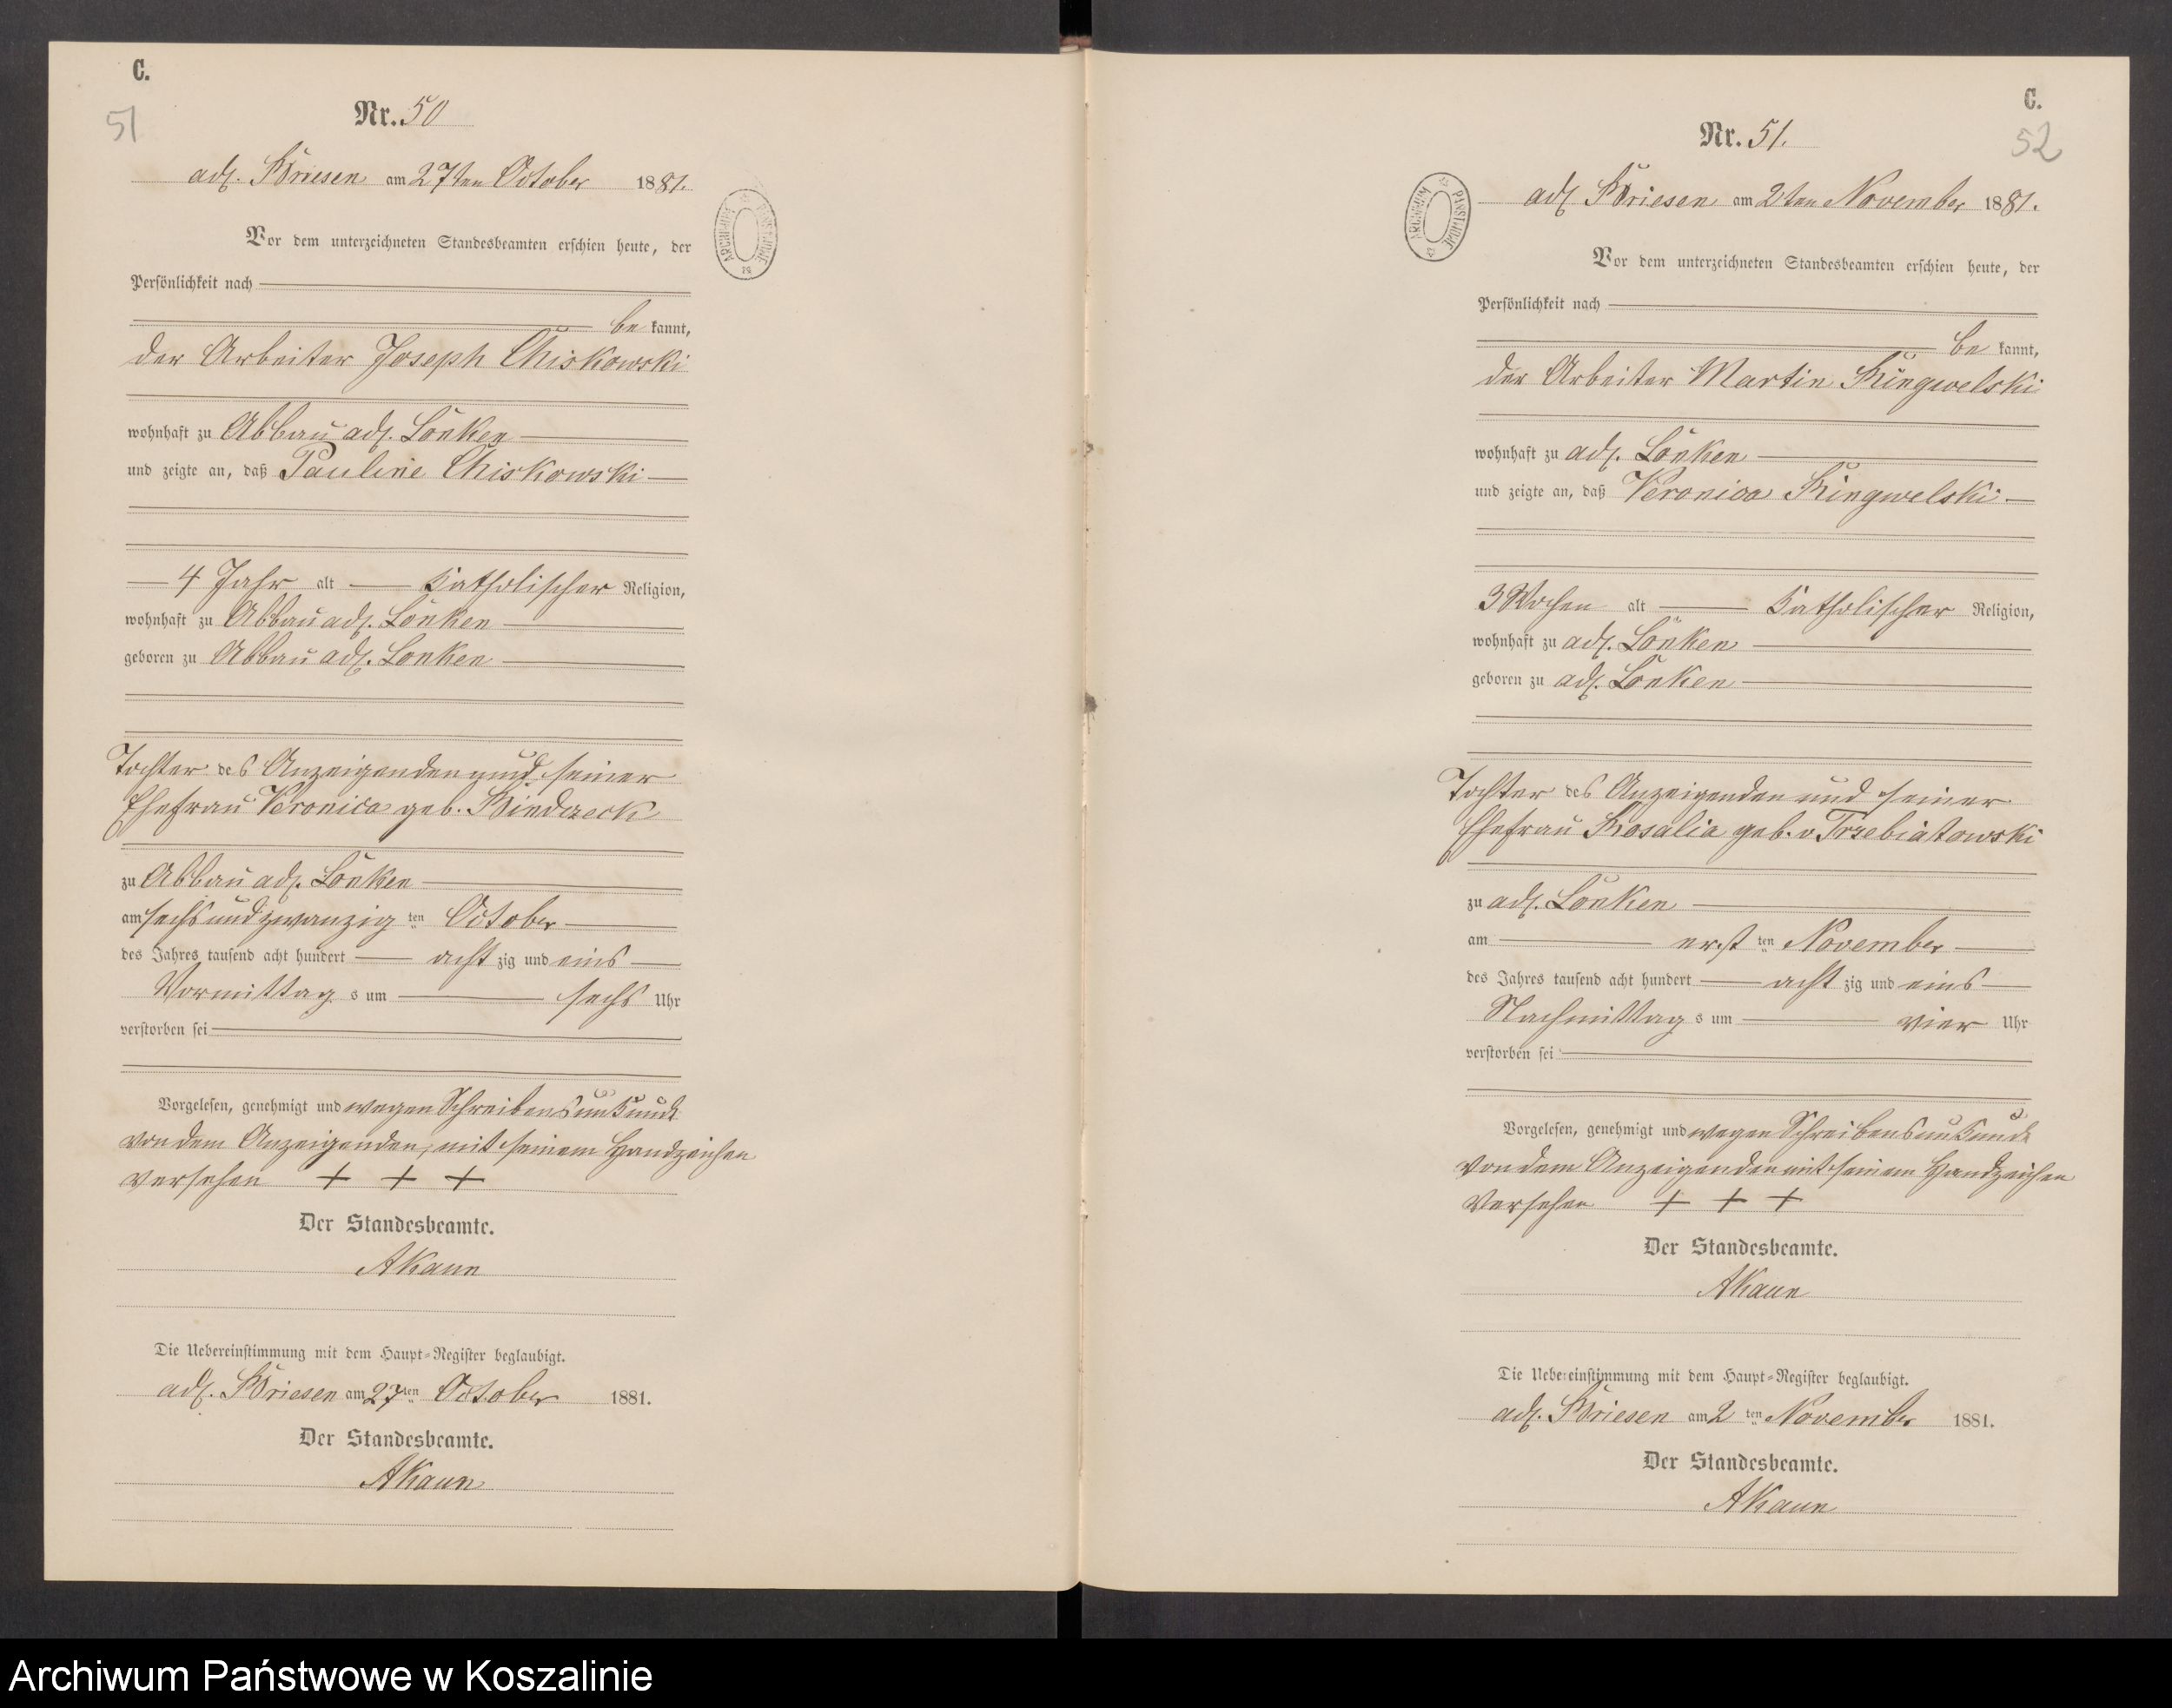 C.
51
Nr. 50
adl. Briesen am 27ten October 1881.
Vor dem unterzeichneten Standesbeamten erschien heute, der
Persönlichkeit nach
be kannt,
der Arbeiter Joseph Chiskowski
wohnhaft zu Abbau adl. Lonken
und zeigte an, daß Pauline Chiskowski
4 Jahr alt katholischer Religion,
wohnhaft zu Abbau adl. Lonken
geboren zu Abbau adl. Lonken
Tochter des Anzeigenden und seiner
Ehefrau Veronica geb.
zu Abbau adl. Lonken
am sechs und zwanzig ten October
des Jahres tausend acht hundert acht zig und eins
Vormittag s um sechs Uhr
verstorben sei
Vorgelesen, genehmigt und wegen Schreibensunkunde
von dem Anzeigenden, mit seinem Handzeichen
versehen + + +
Der Standesbeamte.
AKaun
Die Uebereinstimmung mit dem Haupt-Register beglaubigt.
adl. Briesen am 27ten October 1881.
Der Standesbeamte.
AKaun
C.
52
Nr. 51.
adl Briesen am 2ten November 1881.
Vor dem unterzeichneten Standesbeamten erschien heute, der
Persönlichkeit nach
be kannt,
der Arbeiter Martin Ringwelski
wohnhaft zu adl. Lonken
und zeigte an, daß Veronica Ringwelski
3 Wochen alt katholischer Religion,
wohnhaft zu adl. Lonken
geboren zu adl. Lonken
Tochter des Anzeigenden und seiner
Ehefrau Rosalia geb. v Trzebiatowski
zu adl. Lonken
am erst ten November
des Jahres tausend acht hundert acht zig und eins
Nachmittag s um vier Uhr
verstorben sei
Vorgelesen, genehmigt und wegen Schreibensunkunde
von dem Anzeigenden mit seinem Handzeichen
versehen + + +
Der Standesbeamte.
AKaun
Die Uebereinstimmung mit dem Haupt-Register beglaubigt.
adl. Briesen am 2 ten November 1881.
Der Standesbeamte.
AKaun
Archiwum Państwowe w Koszalinie